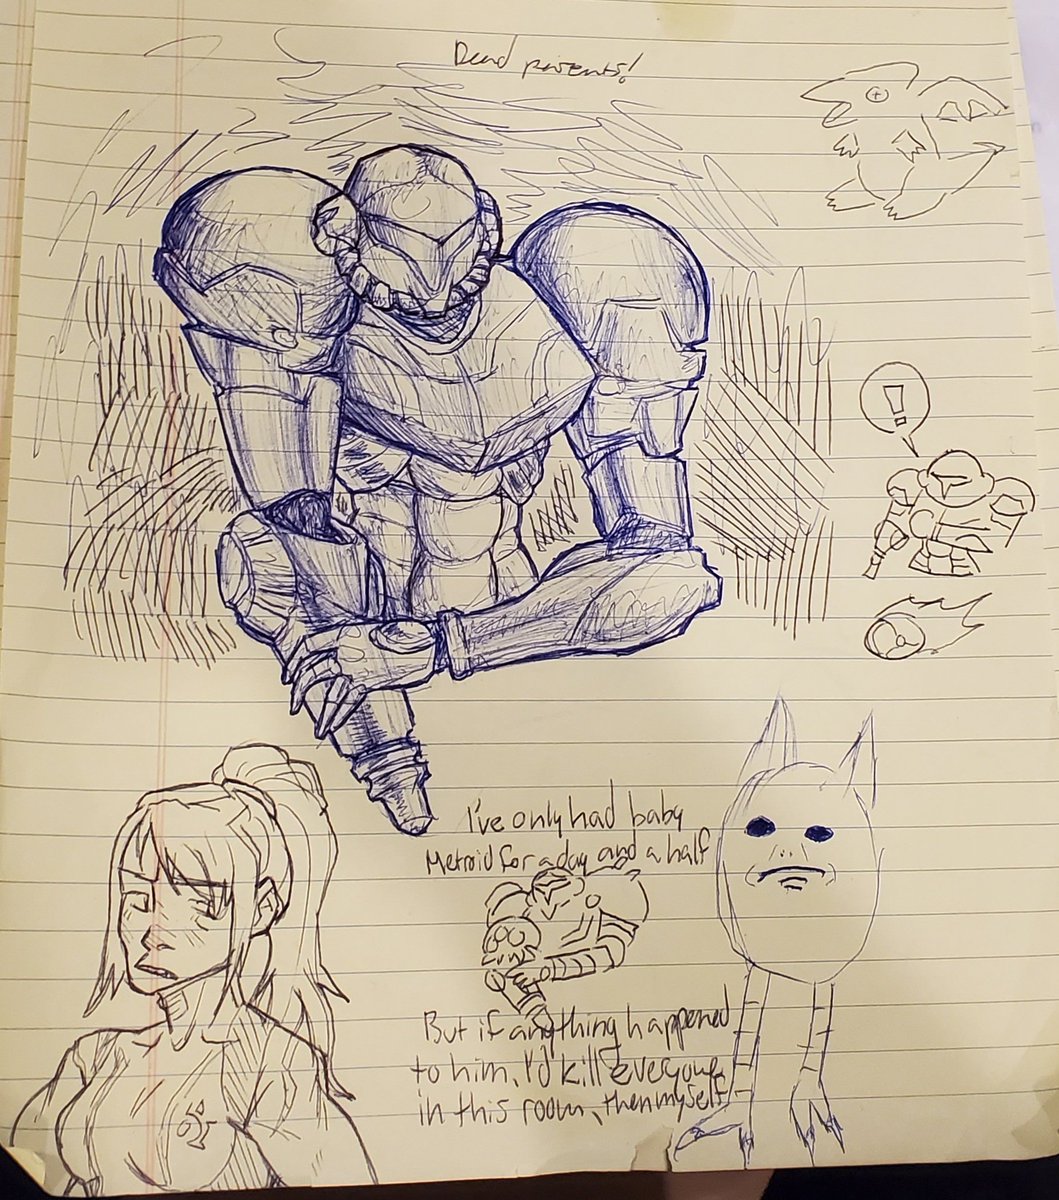 Dead parents!
!
I've only had baby
Metroid for a day and a half
But if anything happened
to him, I'd kill everyone
in this room, then myself